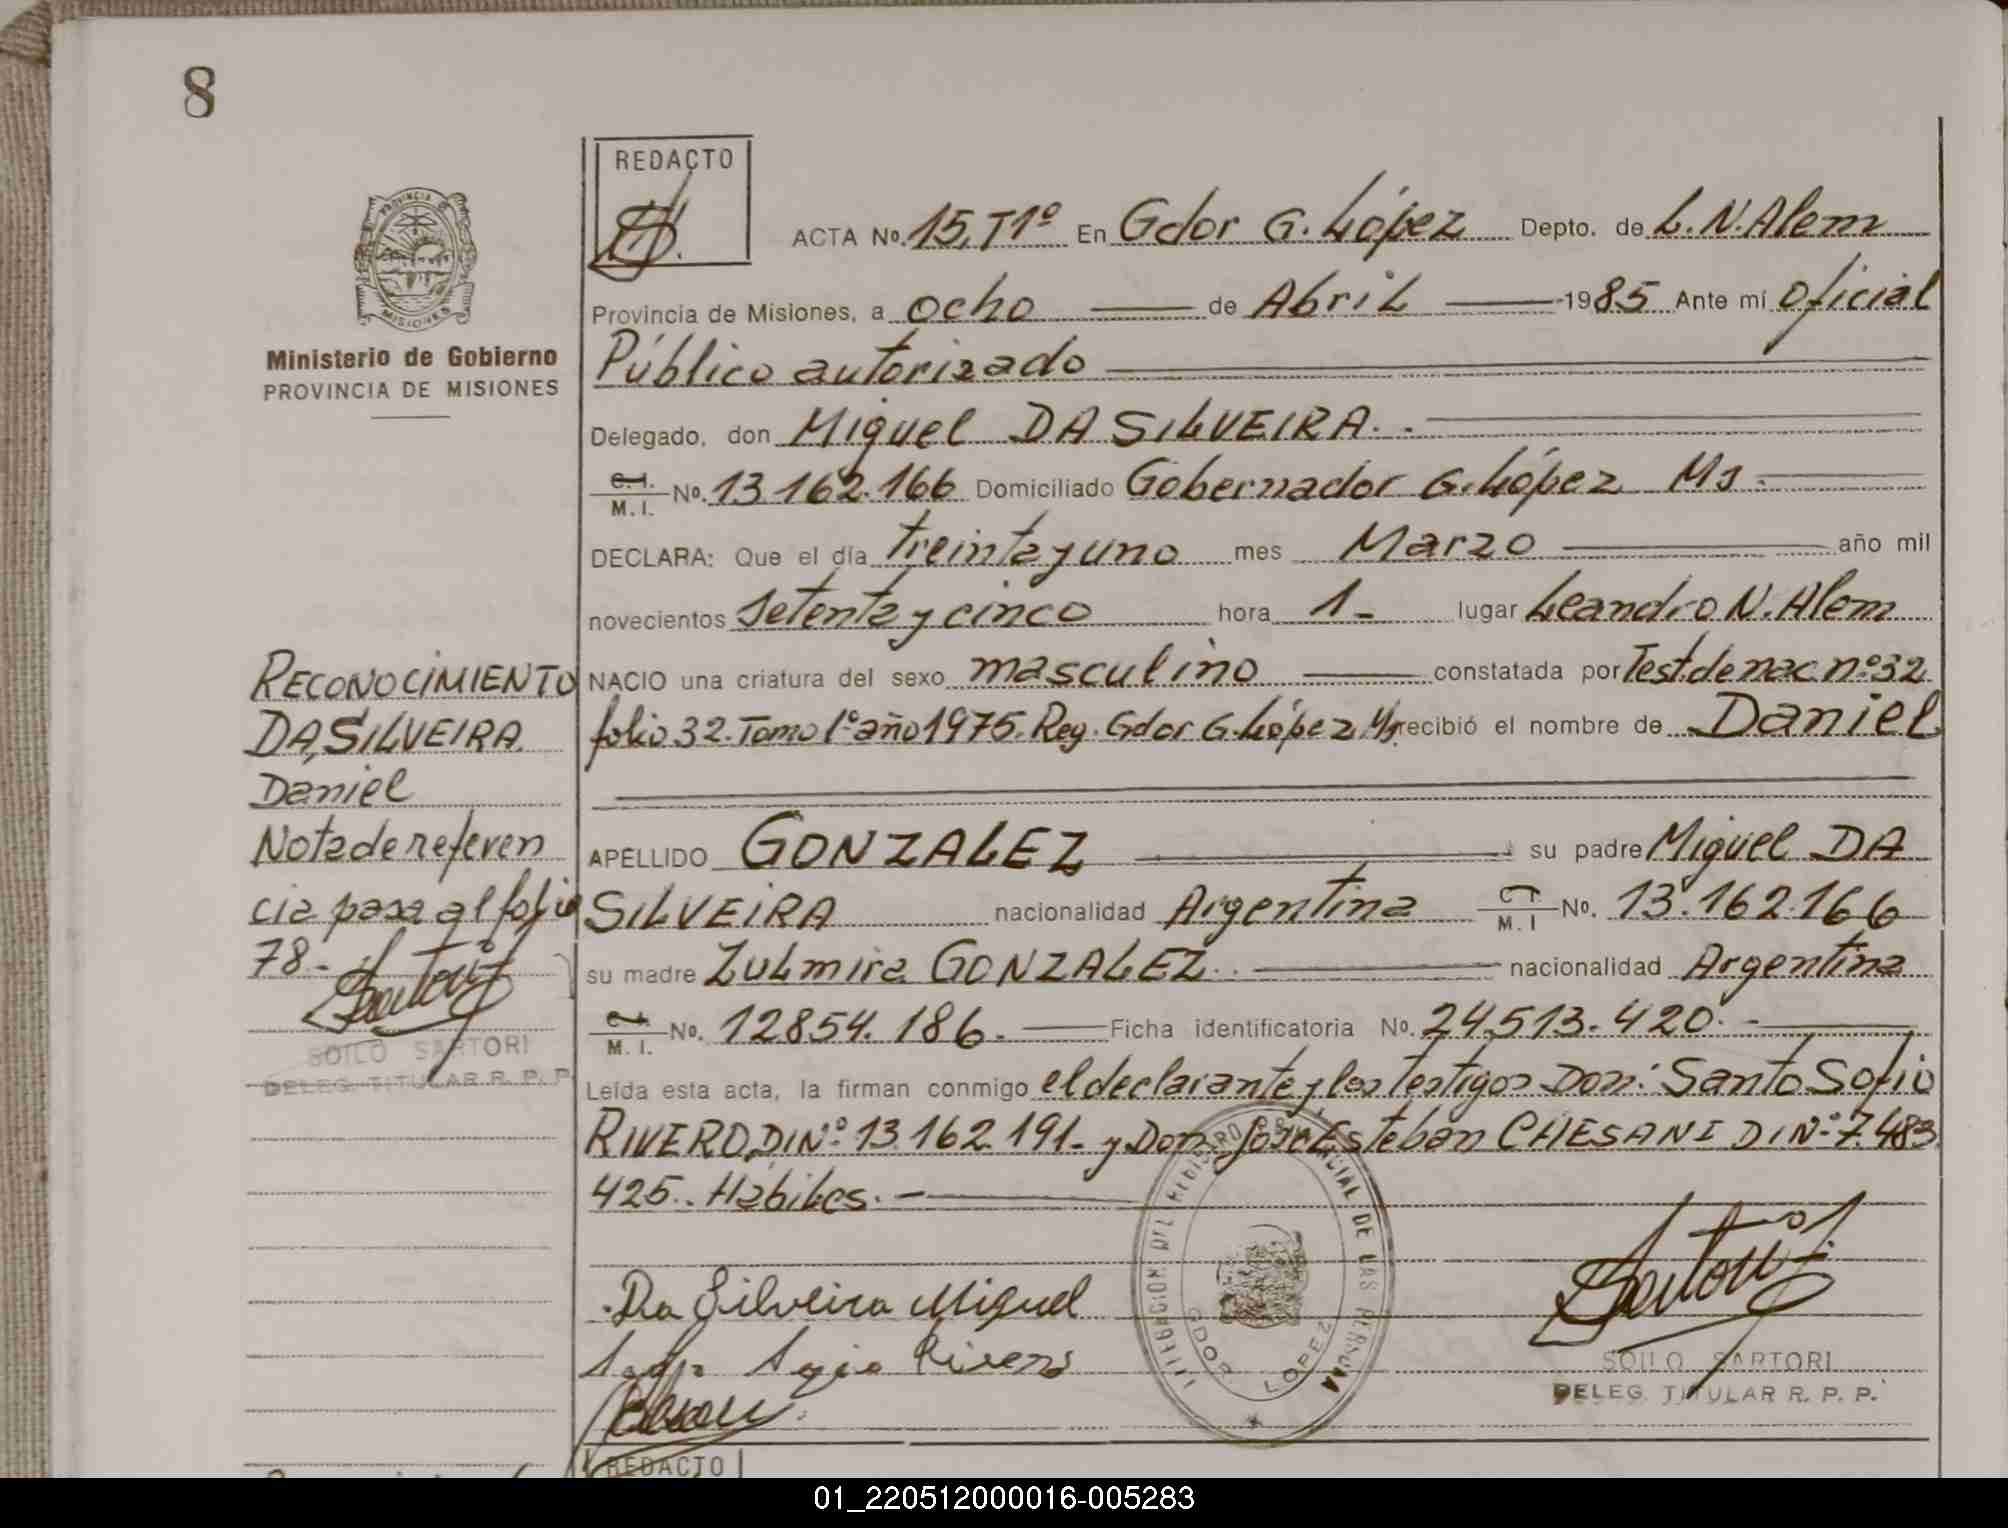 8
REDACTO
ACTA No. 15, T1º En Gdor G. López Depto. de L. N. Alem
Provincia de Misiones, a ocho de Abril 1985 Ante mí Oficial
PROVINCIA DE
MISIONES
Ministerio de Gobierno
PROVINCIA DE MISIONES
Público autorizado
Delegado, don Miguel DA SILVEIRA.
C.I.
M.I. No. 13.162.166 Domiciliado Gobernador G. López Ms
DECLARA: Que el día treinta y uno mes Marzo año mil
novecientos Setenta y cinco hora 1- lugar Leandro N. Alem
NACIO una criatura del sexo masculino constatada por Test. de nac. nº 32
folio 32. Tomo 1º año 1975. Reg. Gdor G. López Ms. recibió el nombre de Daniel
APELLIDO GONZALEZ su padre Miguel DA
SILVEIRA nacionalidad Argentina C I
M. I No. 13.162.166
su madre Zulmira GONZALEZ. nacionalidad Argentina
C.I.
M. I. No. 12854.186.- Ficha identificatoria No. 24.513.420.-
Leída esta acta, la firman conmigo el declarante y los testigos Don: Santo Sofio
RIVERO, DI Nº 13.162.191.- y Don José Esteban CHESANI DI Nº 7.483
425.. Hábiles.-
RECONOCIMIENTO
DA SILVEIRA
Daniel
Nota de referen
cia pasa al folio
78.-
Sartori
SOILO SARTORI
DELEG. TITULAR R. P. P.
Da Silveira Miguel
Rivero
DELEGACION DEL REGISTRO PROVINCIAL DE LAS PERSONAS
GDOR LOPEZ
Sartori
SOILO SARTORI
DELEG. TITULAR R. P. P.
REDACTO
01_220512000016-005283